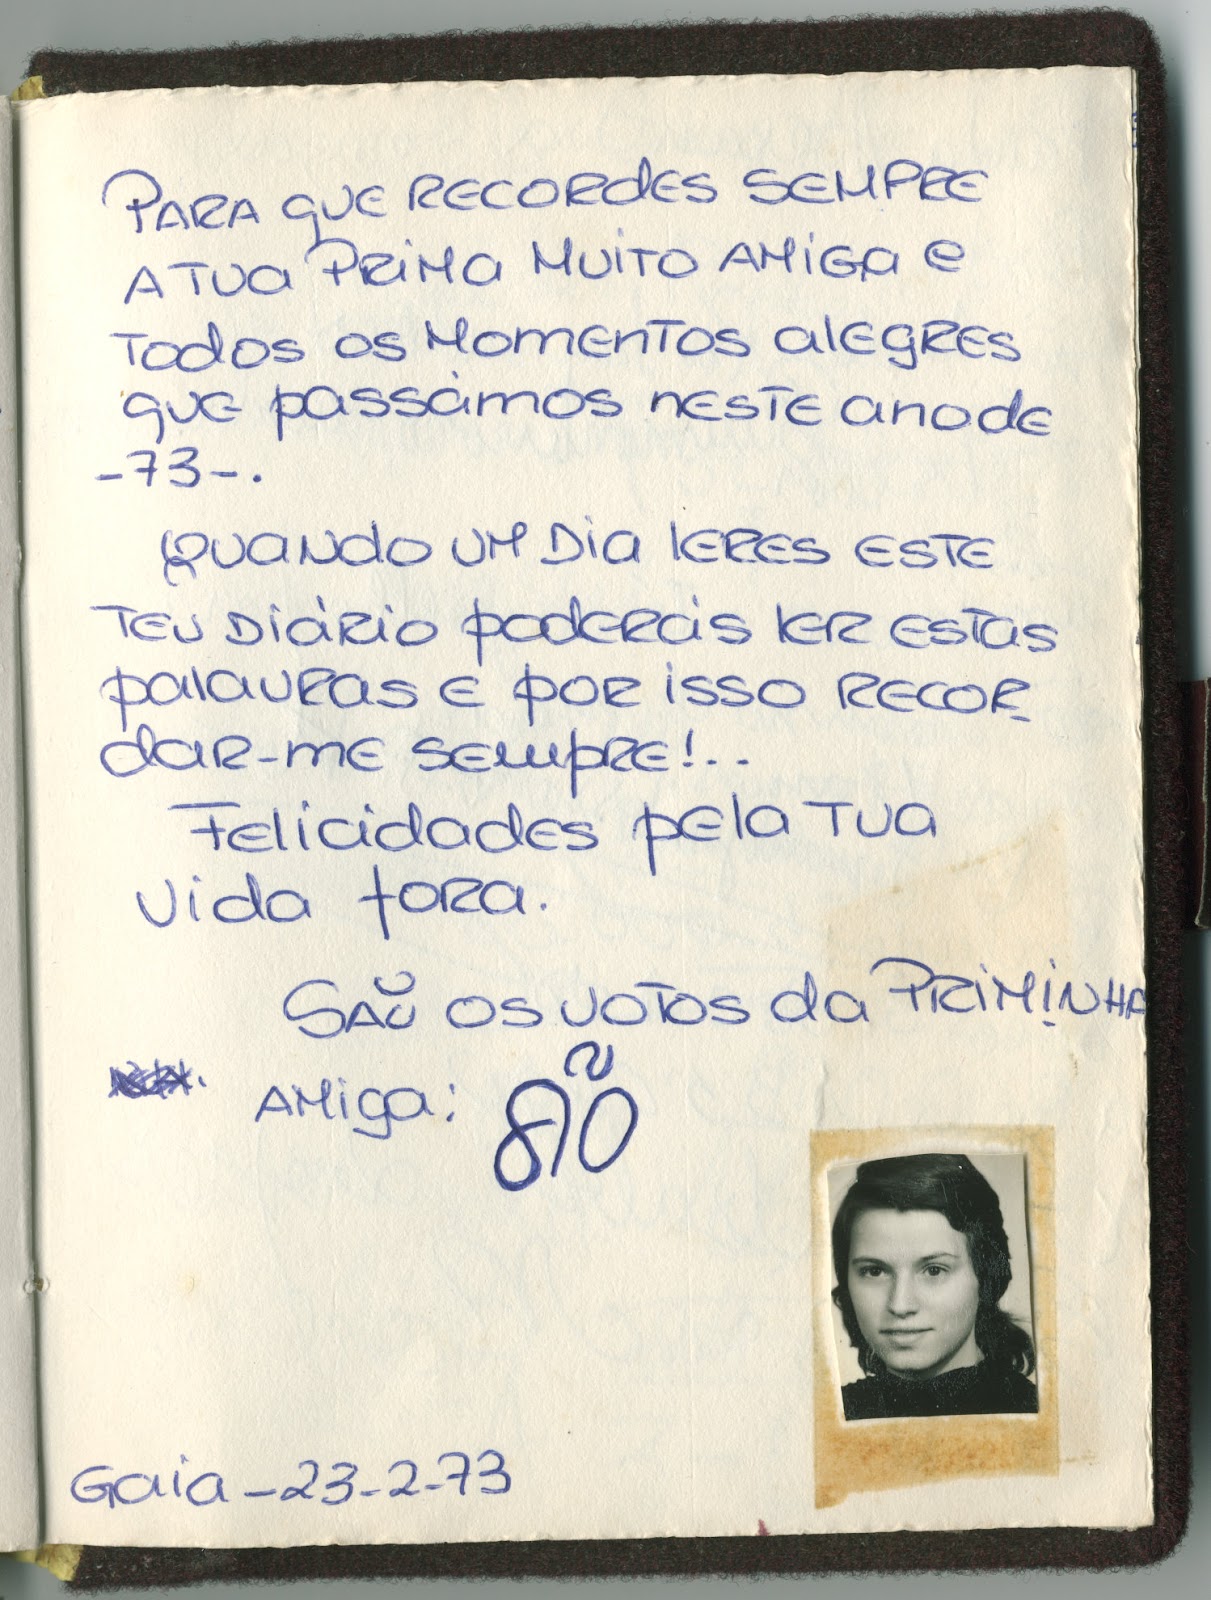 Para que recordes sempre
a tua prima muito amiga e
todos os momentos alegres
que passámos neste ano de
-73-.
Quando um dia leres este
teu diário poderás ler estas
palavras e por isso recor-
dar-me sempre!..
Felicidades pela tua
vida fora.
São os votos da Priminha
amiga: São
Gaia-23-2-73